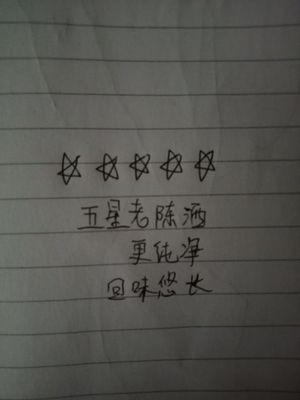 ☆☆☆☆☆
五星老陈酒
更纯净
回味悠长